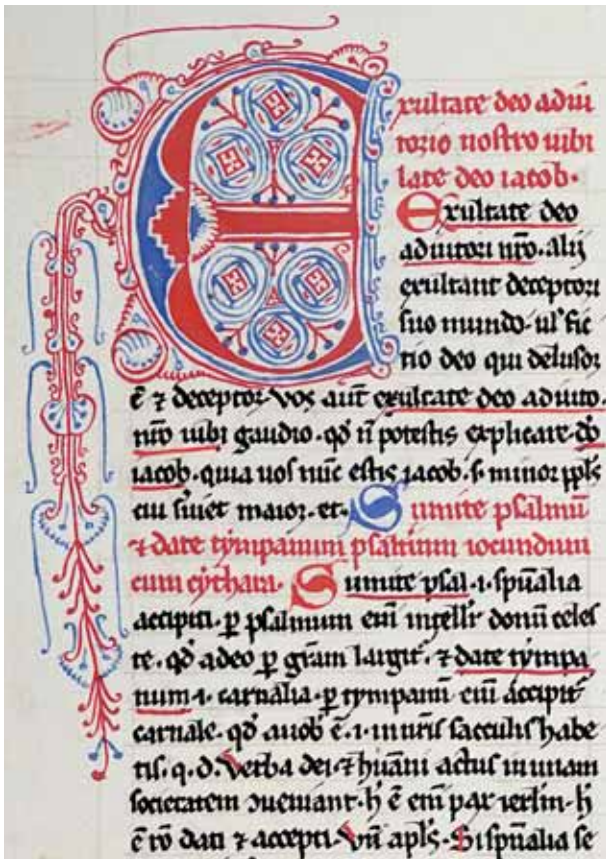 Exultate deo adiu
torio nostro iubi
late deo iacob.
Exultate deo
adiutori nr̄o. alij
exultant deceptori
suo mundo. ul' fic
tio deo qui delusor
ē ⁊ deceptor. Vos aūt exultate deo adiuto.
nr̄o iubi gaudio. qd̄ n̄ potestis explicare. do
iacob. quia uos nūc estis iacob. s. minor ppl̄s
cui seruiet maior. et. Sumite psalmū
⁊ date tympanum psalterium iocundum
cum cythara. Sumite psal. i. spūalia
accipiti. p̱ psalmum eni intelligit donū celes
te. qd̄ adeo p̱ grām largit᷑. ⁊ date tympa
num. i. carnalia. p̱ tympanū eni accipit᷑
carnale. qd̄ auob̄ ē. i. in ur̄is sacculis habe
tis. q. d. Verba dei ⁊ hūani actus in unam
societatem ɔueniant. h̄ ē eni par ierl̄m. h̄
ē ro dati ⁊ accepti. Vn̄ apl̄s. Si spūalia se